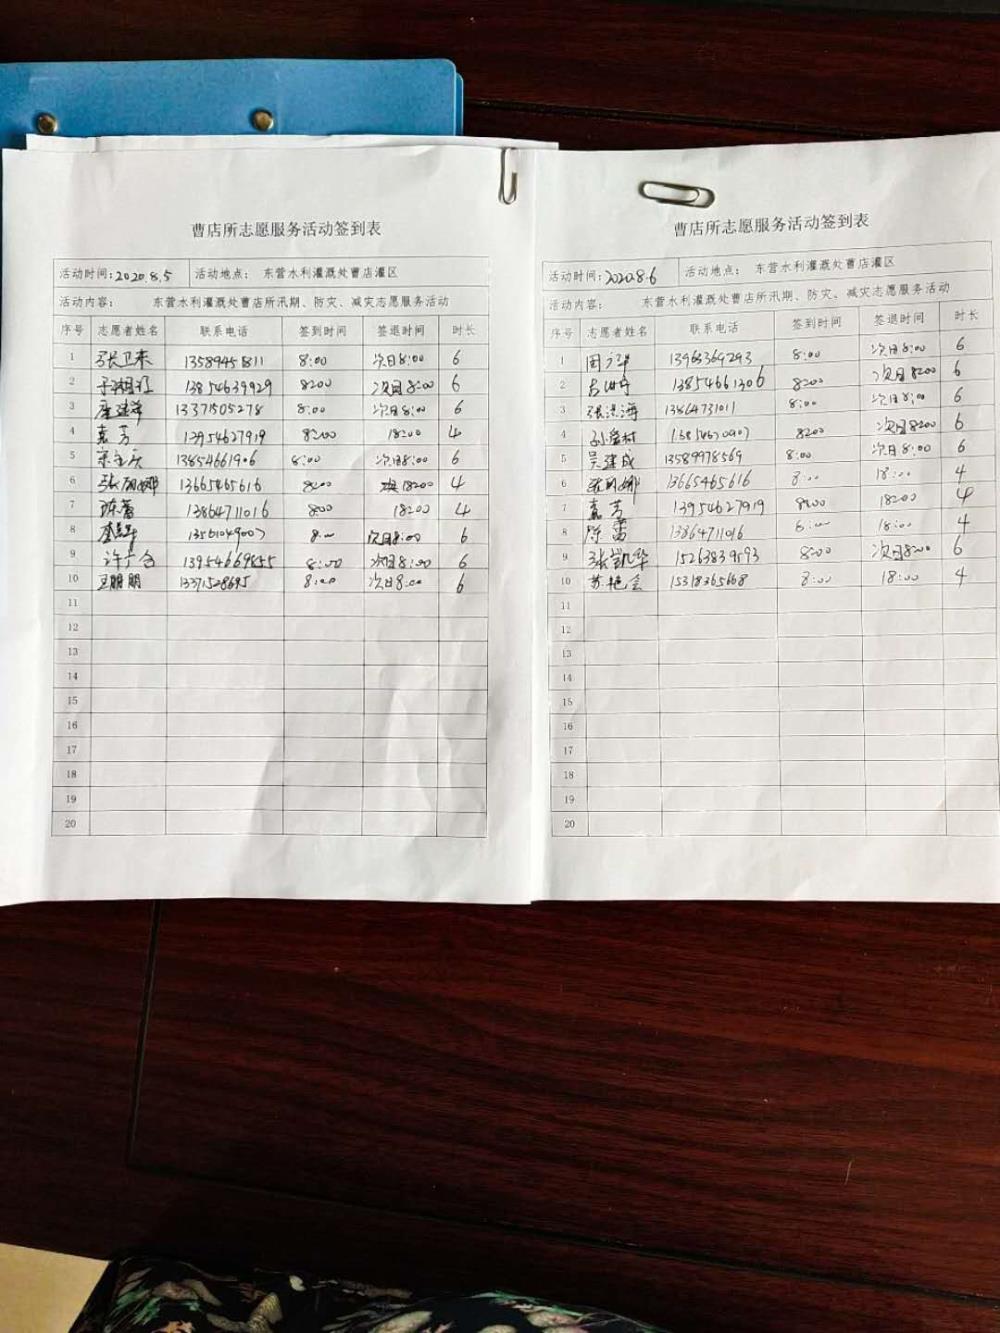 曹店所志愿服务活动签到表
活动时间:2020.8.5 活动地点: 东营水利灌溉处曹店灌区
活动内容: 东营水利灌溉处曹店所汛期、防灾、减灾志愿服务活动
序号 志愿者姓名 联系电话 签到时间 签退时间 时长
1 张卫来 13589451811 8:00 次日8:00 6
2 13854639929 8:00 次日8:00 6
3 13371505278 8:00 次日8:00 6
4 嘉芳 13954627919 8:00 18:00 4
5 13854661906 8:00 次日8:00 6
6 张丽娜 13665465616 8:00 18:00 4
7 陈蕾 13864711016 8:00 18:00 4
8 13561049007 8:00 次日8:00 6
9 许广合 13954669855 8:00 次日8:00 6
10 王鹏朋 13371528695 8:00 次日8:00 6
11
12
13
14
15
16
17
18
19
20
曹店所志愿服务活动签到表
活动时间:2020.8.6 活动地点: 东营水利灌溉处曹店灌区
活动内容: 东营水利灌溉处曹店所汛期、防灾、减灾志愿服务活动
序号 志愿者姓名 联系电话 签到时间 签退时间 时长
1 13963369293 8:00 次日8:00 6
2 13854661306 8:00 次日8:00 6
3 张洪海 13864731011 8:00 次日8:00 6
4 8:00 次日8:00 6
5 吴建成 13589978569 8:00 次日8:00 6
6 张丽娜 13665465616 8:00 18:00 4
7 嘉芳 13954627919 8:00 18:00 4
8 陈蕾 13864711016 8:00 18:00 4
9 张凯华 15263839593 8:00 次日8:00 6
10 苏艳会 15318365668 8:00 18:00 4
11
12
13
14
15
16
17
18
19
20